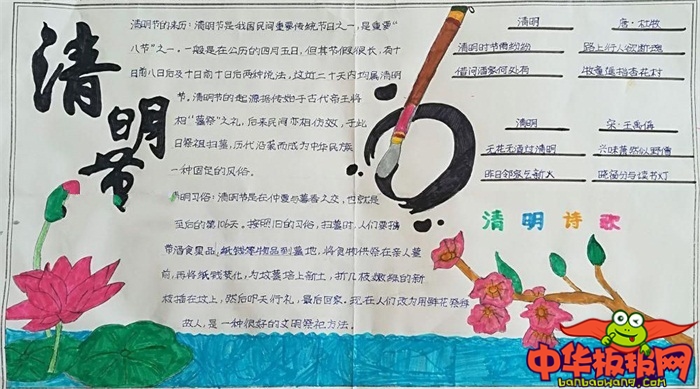 清明节
清明节的来历：清明节是我国民间重要传统节日之一，是重要"
八节"之一．一般是在公历的四月五日，但其节期很长，有十
日前八日后及十日前十日后两种说法，这近二十天内均属清明
节．清明节的起源据传始于古代帝王将
相"墓祭"之礼，后来民间亦相仿效，于此
日祭祖扫墓，历代沿袭而成为中华民族
一种固定的风俗．
清明习俗：清明节是在仲春与暮春之交，也就是
至后的第106天．按照旧的习俗，扫墓时，人们要携
带酒食果品，纸钱等物品到墓地，将食物供祭在亲人墓
前，再将纸钱焚化，为坟墓培上新土，折几枝嫩绿的新
枝插在坟上，然后叩天行礼，最后回家．现在人们改为用鲜花祭
故人，是一种很好的文明祭祀方法．
清明 唐·杜牧
清明时节雨纷纷 路上行人欲断魂
借问酒家何处有 牧童遥指杏花村
清明 宋·王禹偁
无花无酒过清明 兴味萧然似野僧
昨日邻家乞新火 晓窗分与读书灯
清明诗歌
中华板报网
banbaowang.com